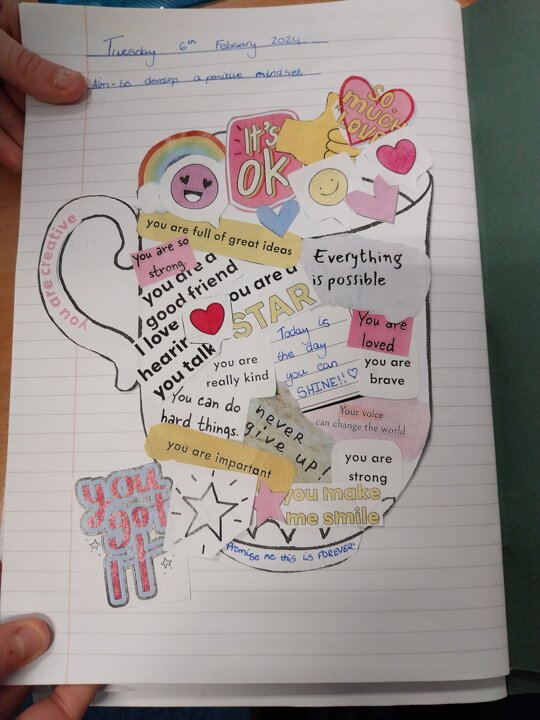 Tuesday 6th February 2024
Aim- to develop a positive mindset
SO
MUCH
LOVE
IT'S
OK
you are creative
you are full of great ideas
You are so
strong.
Everything
is possible
you are a
good friend
you are a
STAR
I love
hearing
you talk
Today is
the day
you can
SHINE!!♡
You are
loved
you are
really kind
you are
brave
You can do
hard things.
never
give up!
Your voice
can change the world
you are important
you are
strong
you make
me smile
you
got
it
Promise me this is FOREVER!